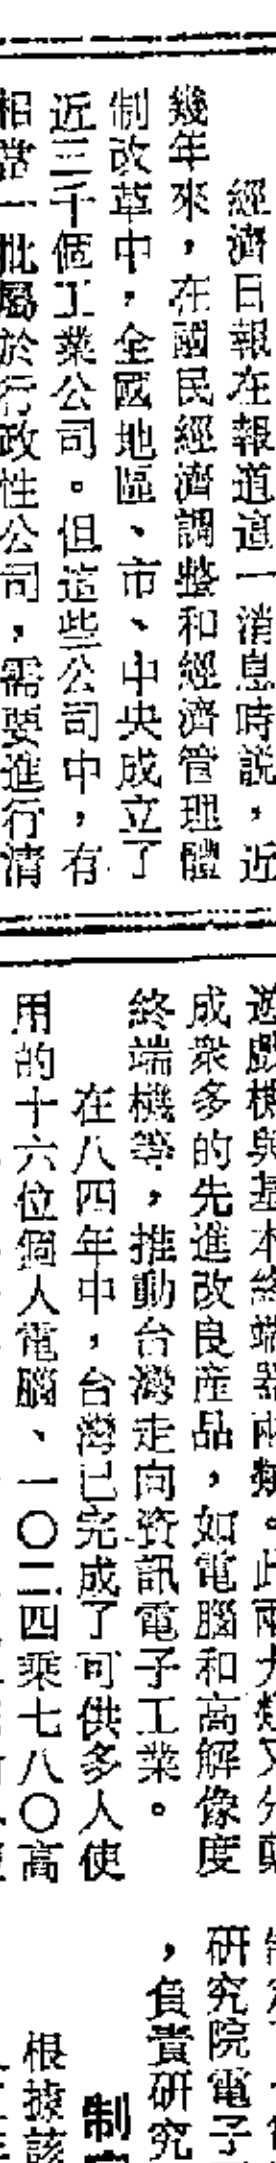 經濟日報在報道這一消息時説，近
幾年來，在國民經濟調整和經濟管理體
制改革中，全國地區、市、中央成立了
近三千個工業公司。但這些公司中，有
相當一批屬於行政性公司，需要進行清
遊戲機與基本終端器兩類。此兩大類又分
成衆多的先進改良産品，如電腦和高解像度
終端機等，推動台灣走向資訊電子工業。
在八四年中，台灣已完成了可供多人使
用的十六位個人電腦、一〇二四乘七八〇高
研究院電子
，負責研究
制
根據該